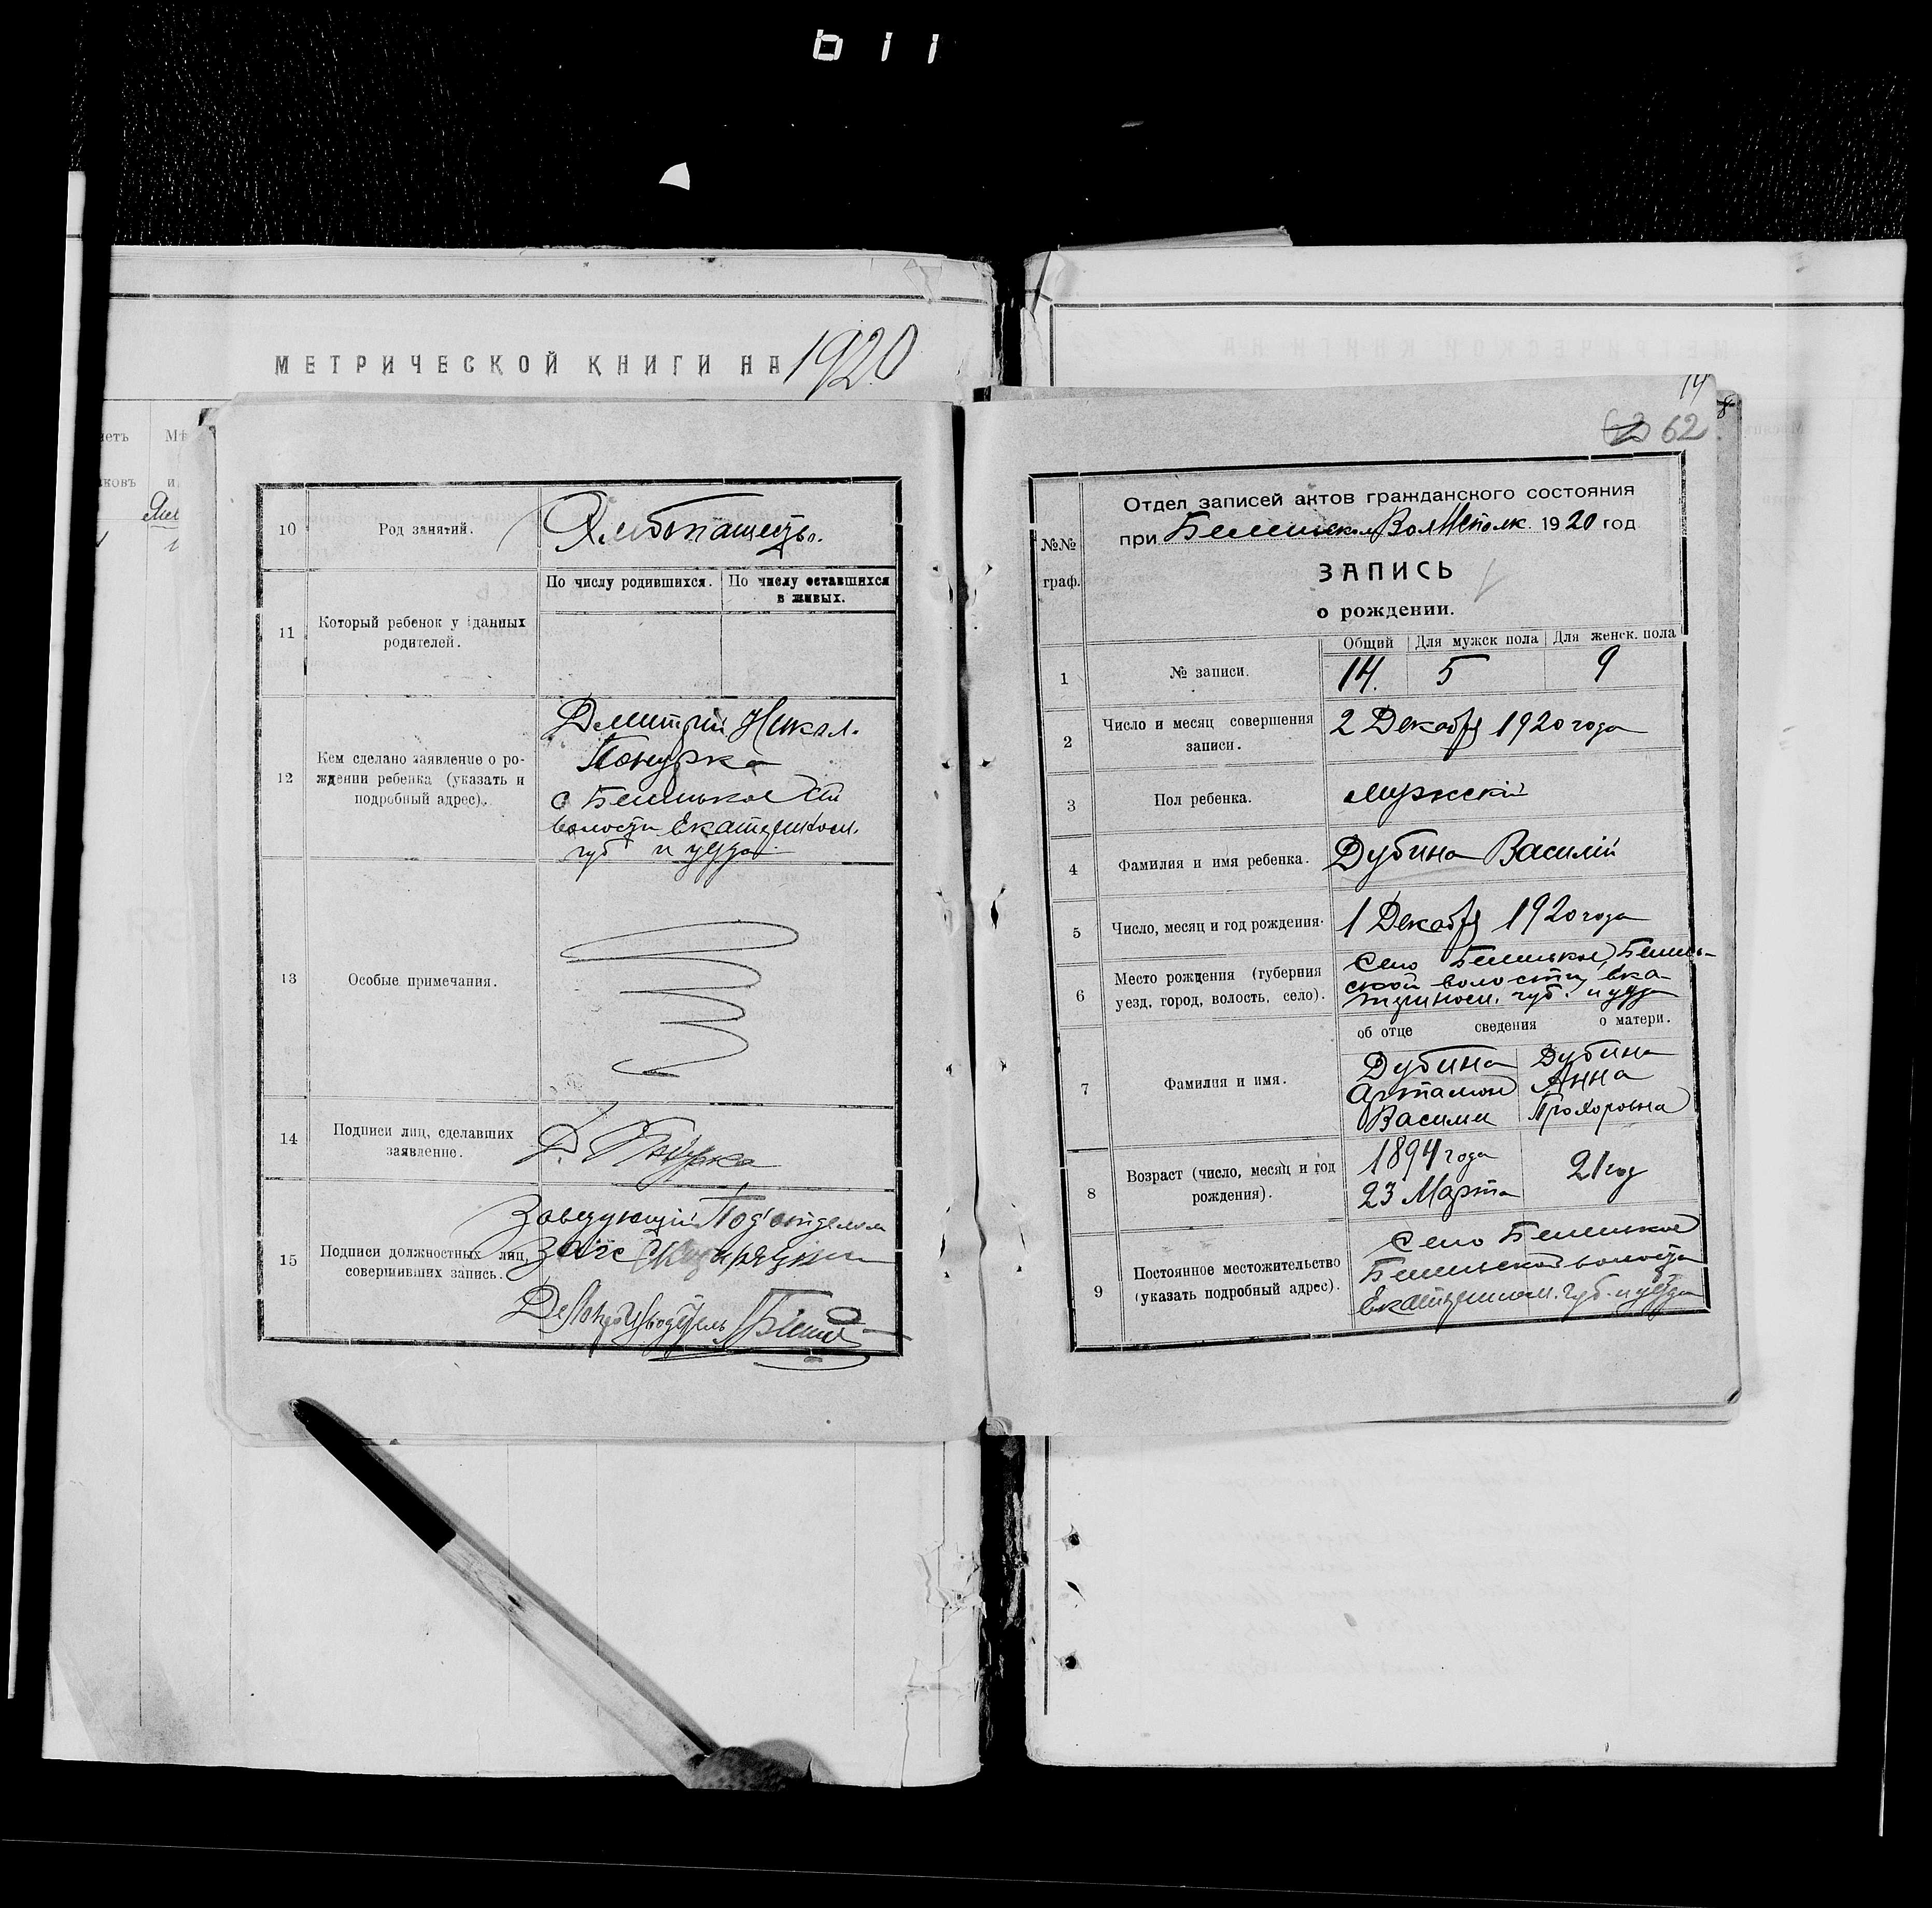 МЕТРИЧЕСКОЙ КНИГИ НА 1920
10
Род занятий.
Хлебопашество.
11
Который ребенок у данных
родителей.
По числу родившихся.
По числу оставшихся
в живых.
12
Кем сделано заявление о ро-
ждении ребенка (указать и
подробный адрес).
Дмитрий Никол.
Понурка
волости Екатериносл.
губ и уезда
13
Особые примечания.
14
Подписи лиц, сделавших
заявление.
Д. Понурка
15
Подписи должностных лиц,
совершивших запись.
Заведующий Под'отделом
Загс
Делопроизводитель
14
62
№№
граф.
Отдел записей актов гражданского состояния
при Волисполк. 1920 год
ЗАПИСЬ
о рождении.
Общий
Для мужск пола
Для женск. пола
1
№ записи.
14.
5
9
2
Число и месяц совершения
записи.
2 Декабря 1920 года
3
Пол ребенка.
мужский
4
Фамилия и имя ребенка.
Дубина Василий
5
Число, месяц и год рождения.
1 Декабря 1920 года
6
Место рождения (губерния
уезд, город, волость, село).
Село
ской волости Ека-
теринос. губ. и уезда
об отце сведения о матери.
7
Фамилия и имя.
Дубина
Артамон
Васильи
Дубина
Анна
Прохоровна
8
Возраст (число, месяц и год
рождения).
1894 года
23 Марта
21 год
9
Постоянное местожительство
(указать подробный адрес).
Село
волости
Екатеринос. губ. и уезда